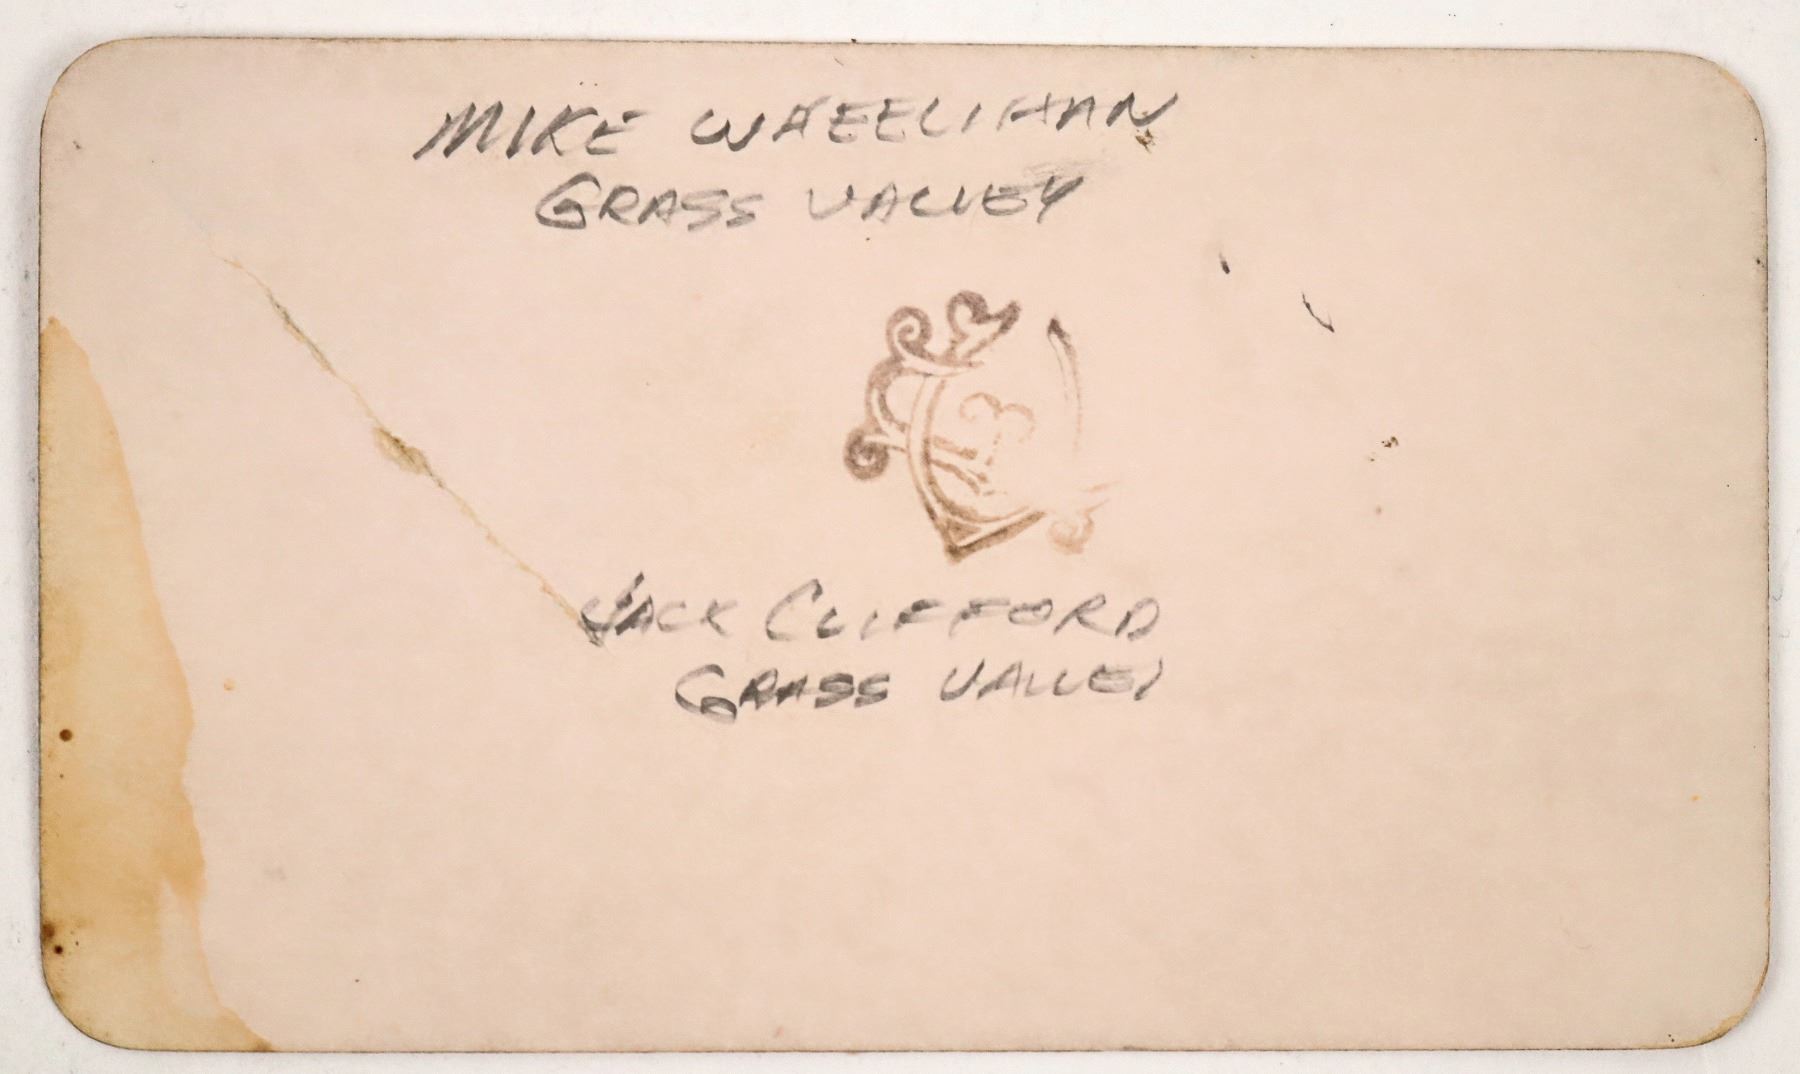 MIKE WHEELIHAN
GRASS VALLEY
JACK CLIFFORD
GRASS VALLEY